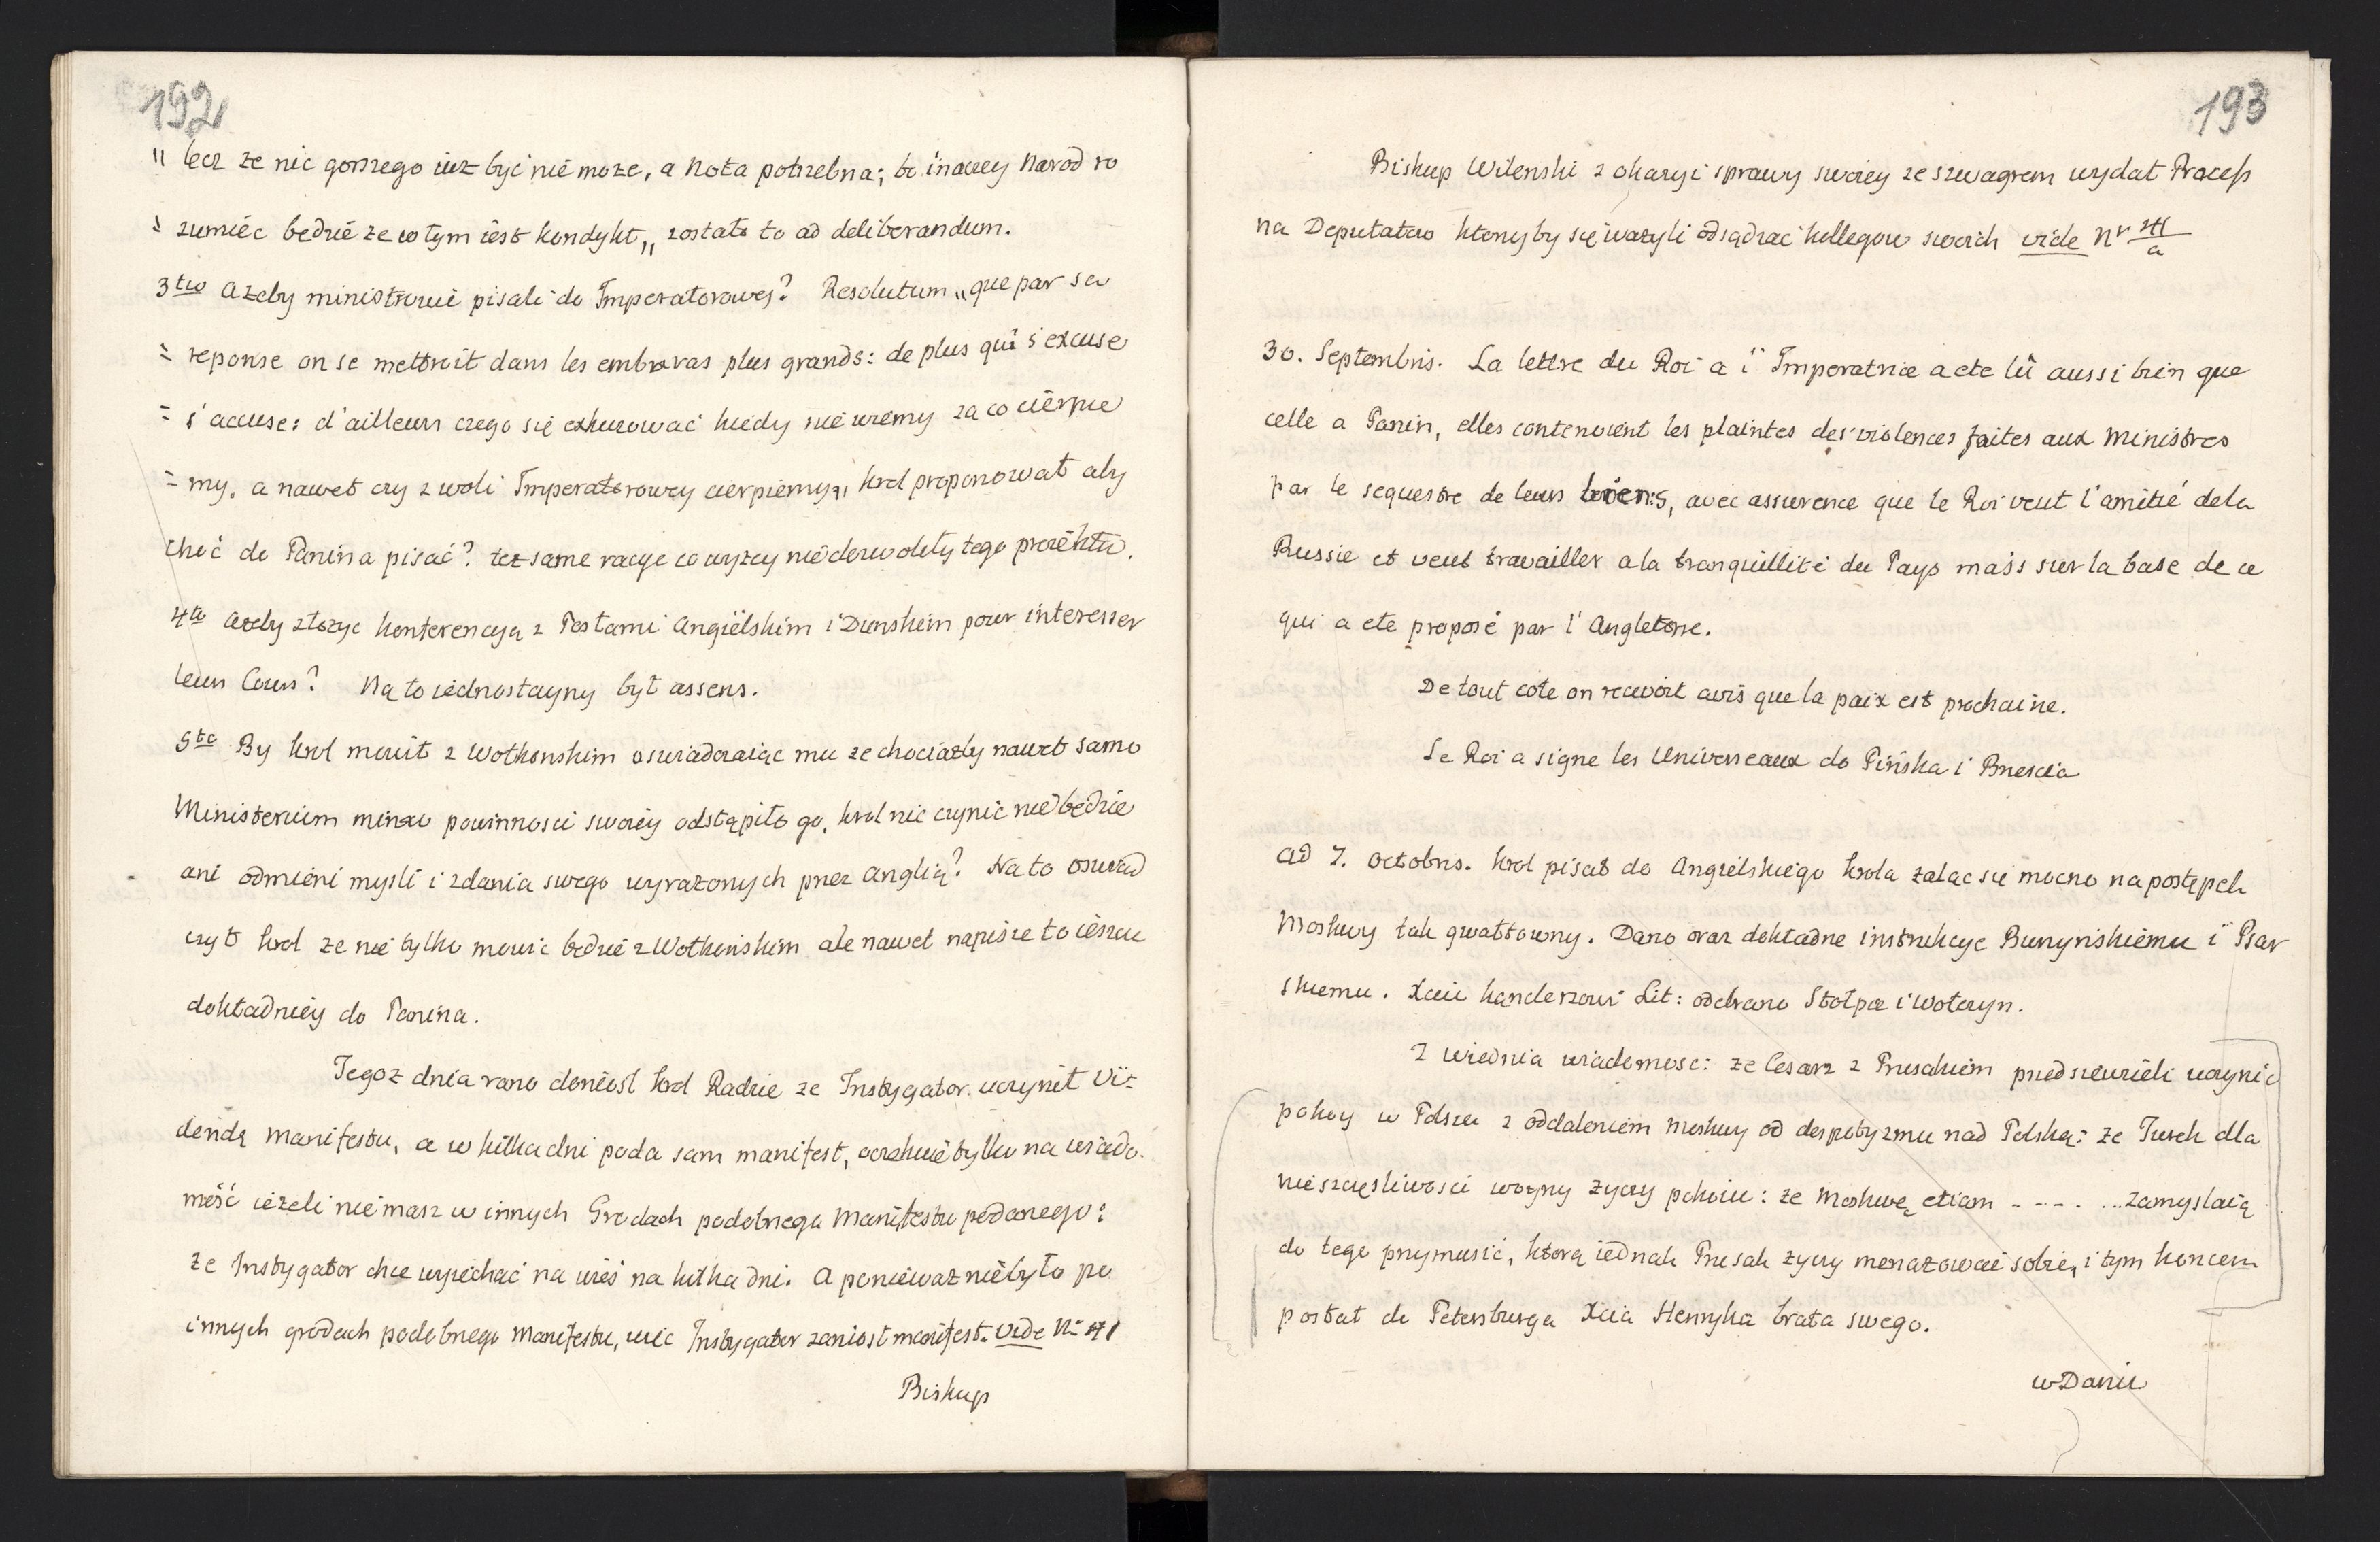 192
„ lecz ze nic gorszego iuz być nie moze, a Nota potrzebna; bo inaczey Narod ro
„ zumiéc bedzie ze w tym iest kondykt„ zostało to ad deliberandum.
3tio Azeby ministrowie pisali do Imperatorowej? Resolutum „que par sa
= reponse on se mettroit dans les embarras plus grands: de plus qui s'excuse
= s'accuse: d'ailleurs czego się exkuzować kiedy nie wiemy za co cierpie
= my. a nawet czy z woli Imperatorowey cierpiemy„ krol proponował aby
choć do Panina pisać? tez same racye co wyzey niedozwoliły tego proiektu.
4to Azeby złozyc konferencyą z Posłami Angielskim i Dunskim pour interesser
leurs Cours? Na to iednostayny był assens.
5to By krol mowił z Wołkonskim oswiadczaiąc mu ze chociazby nawet samo
Ministerium mimo powinnosci swoiey odstąpiło go, krol nic czynic nie będzie
ani odmieni mysli i zdania swego wyrazonych przez Anglią? Na to oswiad
czył krol ze nie tylko mowic bedzie z Wołkonskim ale nawet napisze to ieszcze
dokładniey do Panina.
Tegoz dnia rano doniosł krol Radzie ze Instygator uczynił Vi=
dendę manifestu, a w kilka dni poda sam manifest, oczekuie tylko na wiado
mość iezeli niemasz w innych Grodach podobnego Manifestu podanego:
ze Instygator chce wyiechać na wieś na kilka dni. A poniewaz niebyło po
innych grodach podobnego Manifestu, wiec Instygator zaniosł manifest. vide N: 41
Biskup
193
Biskup Wilenski z okazyi sprawy swoiey ze szwagrem wydał Process
na Deputatow ktorzyby się wazyli odsądzać kollegow swoich vide Nr 41/a
30. Septembris. La lettre du Roi a l'Imperatrice a ete lû aussi bien que
celle a Panin, elles contenoient les plaintes des violences faites aux Ministres
par le sequestre de leurs biens, avec assurence que le Roi veut l'amitié de la
Russie et veut travailler a la tranquillité du Pays mais sur la base de ce
qui a ete proposé par l'Angleterre.
De tout cote on recevoit avis que la paix est prochaine.
Le Roi a signe les Universeaux do Pińska i Brescia
Ad 7. Octobris. krol pisał do Angielskiego krola zaląc się mocno na postępek
Moskwy tak gwałtowny. Dano oraz dokładne instrukcye Burzynskiemu i Psar
skiemu. Xciu kanclerzowi Lit: odebrano Stołpce i Wołczyn.
Z Wiednia wiadomosc: ze Cesarz z Prusakiem przedsiewzieli uczynic
pokoy w Polszcze z oddaleniem Moskwy od despotyzmu nad Polską: ze Turek dla
nieszczęsliwosci woyny zyczy pokoiu: ze Moskwę etiam - - - - ... zamyslaią
do tego przymusić, ktorą iednak Prusak zyczy menazować sobie, i tym koncem
posłał do Petersburga Xcia Henryka brata swego.
w Danii